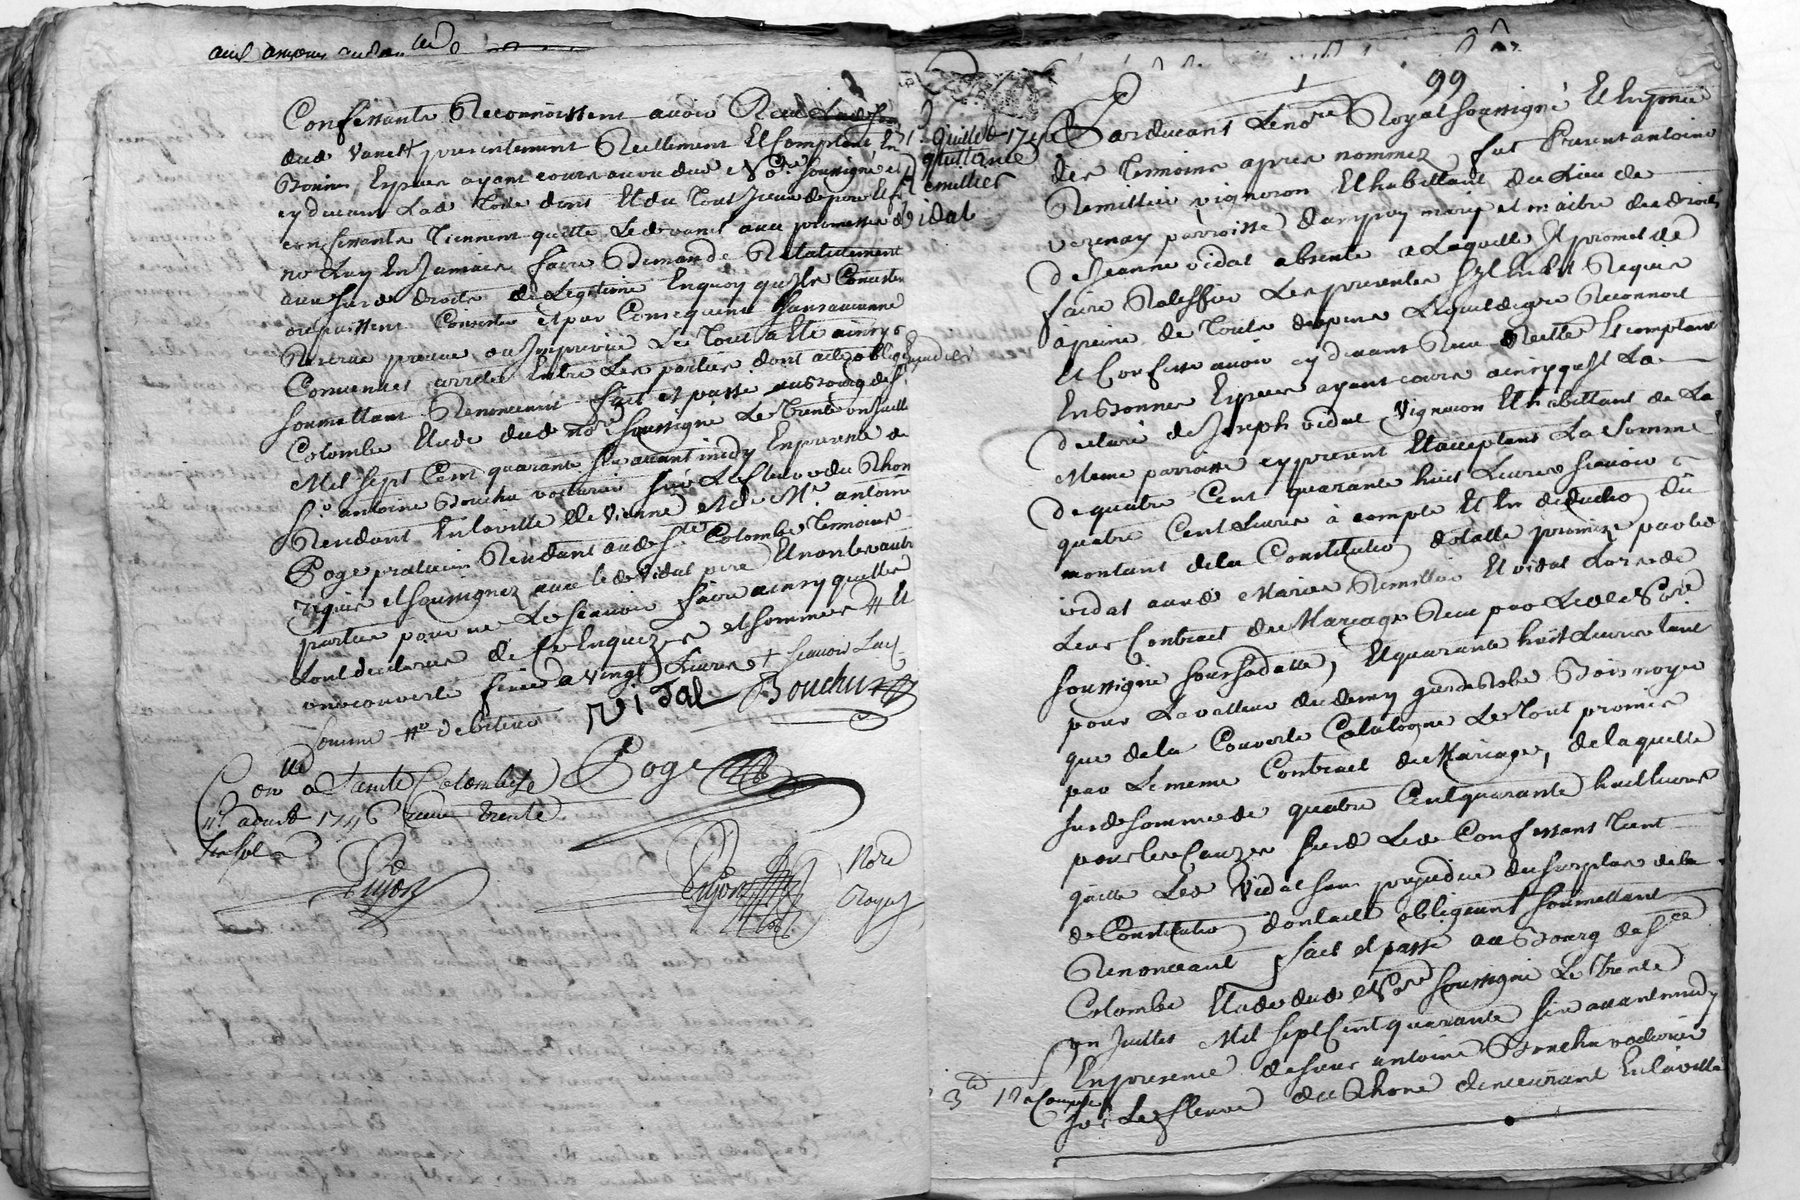 Confessants Reconnoissent avoir Reçu
dud Vanet presentement Reellement Et Comptant En
Bonnes Especes ayant cours au vu dud Nore soussigné et
cy devant Lad dote dont Et du tout
confessants tiennent quitte Led vanet avec promesse de
ne Luy En Jamais faire Demande Relativement
aux susd droits de Legitime En quoy quils Consistent
ou puissent Consister et par Consequent
Reserve prevue ou Imprevue Le tout a été ainsy
Convenus arrêté Entre Les parties dont acte obligeant
soumettant Renonceants fait et passé au Bourg de Ste
Colombe Etude dud nore soussigné Le trente un Juillet
Mil sept Cent quarante six avant midy En presence de
sr antoine Bouchu voiturier sur Le fleuve du Rhone
Residant En la ville de Vienne et de Me antoine
Poge praticien Residant aud Ste Colombe temoins
requis et soussignez avec led Vidal pere Et non les autres
parties pour ne Le scavoir faire ainsy quelles
ont declarés de ce Enquizes et sommées
Vidal Bouchu
Poge
Con a Sainte Colombe le
4e aoust 1746 reçu trente
Pujon
Pujon Nore
Royal
31 Juillet 1746
quittance
Remillier
Vidal
99
Pardevant Le nore Royal soussigné Et En presence
des temoins apres nommez fut Present antoine
Remillier vigneron Et habittant du Lieu de
verenay parroisse dampuy mary et maitre des droits
de Jeanne vidal absente a Laquelle Il promet de
faire Ratiffier Les presentes sil En Est Requis
a peine de touts depens Lequel de gré Reconnoit
Et Confesse avoir cy devant Reçu Reelle Et comptant
En Bonnes Especes ayant cours ainsy quil La
declaré de Joseph vidal Vigneron Et habittant de La
Meme parroisse cy present Et acceptant La Somme
de quatre Cent quarante huit Livres scavoir
quatre Cent Livres à compte Et En deductio du
montant de la Constitutio dotalle promize par led
vidal aud Mariés Remillier Et vidal Lors de
Leur Contract de Mariage Reçu par Led Nore
soussigné sous sa datte, Et quarante huit Livres tant
pour La valleur du demy garderobe Bois noyer
que de la Couverte Catalogne Le tout promis
par Le meme Contract de Mariage, de laquelle
susd somme de quatre Cent quarante huit Livres
pour les Causes susd Led Confessant tient
quitte Led Vidal sans prejudice du surplus de la
de Constitutio dont acte obligeant soumettant
Renonceant fait et passé au Bourg de Ste
Colombe Etude dud Nore soussigné Le trente
un Juillet Mil sept Cent quarante six avant midy
En presence de sieur antoine Bouchu voiturier
sur Le fleuve du Rhone demeurant En la ville